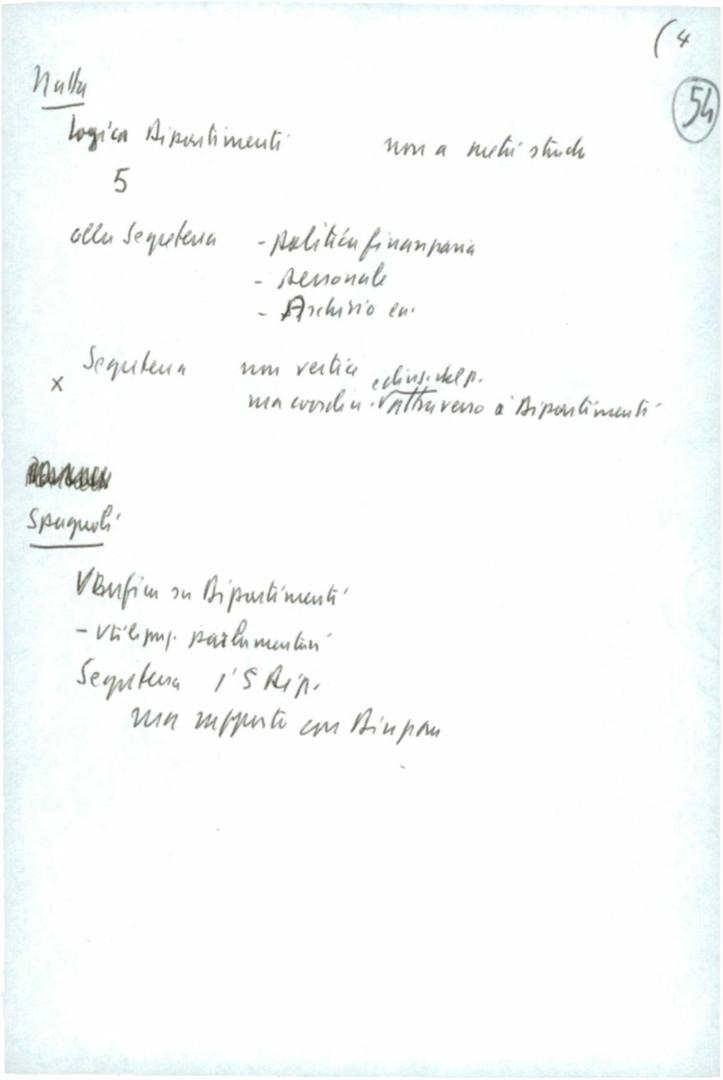 (4
54
Natta
logica Dipartimenti non a metà strada
5
alla Segreteria - politica finanziaria
- personale
- Archivio ecc.
x Segreteria non vertice
ma coordin. attraverso i Dipartimenti
Spagnoli
Verifica su Dipartimenti
- parlamentari
Segreteria i 5 Dip.
ma rapporti con